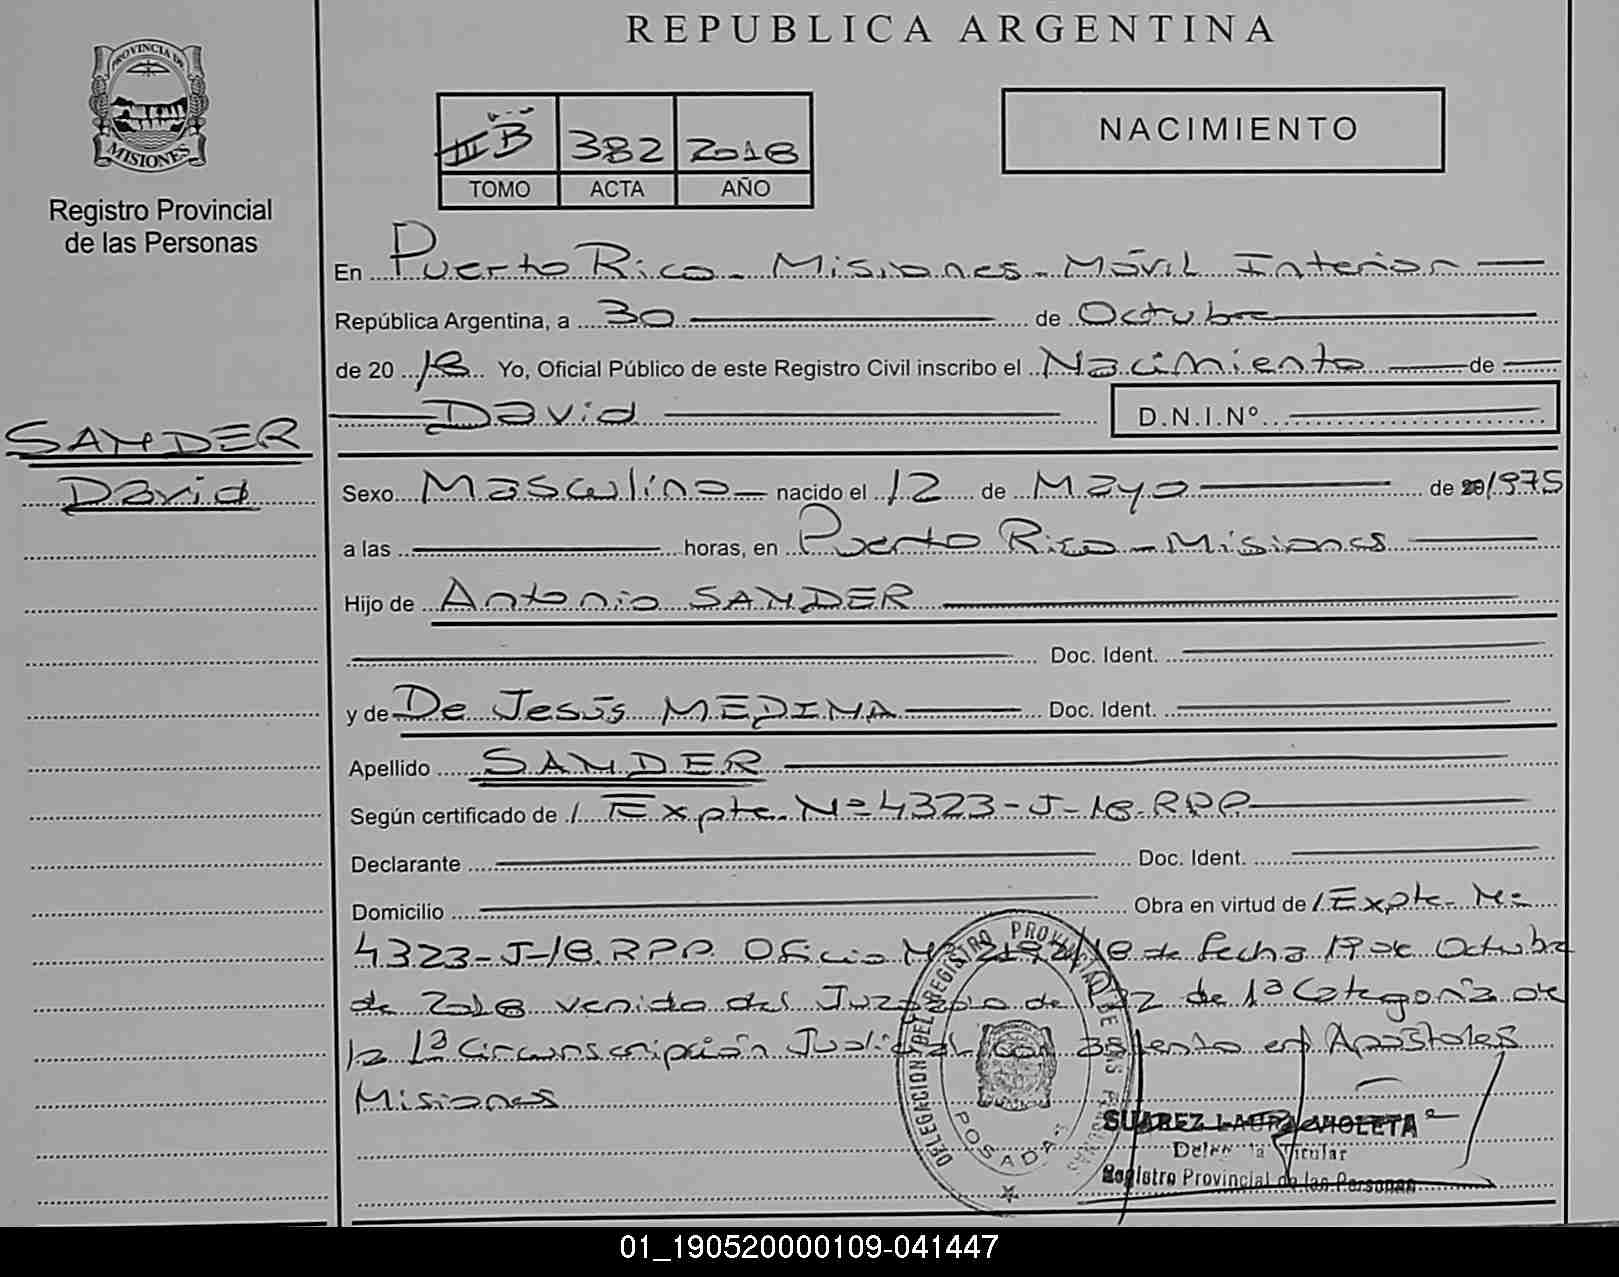 REPUBLICA ARGENTINA
PROVINCIA DE
MISIONES
Registro Provincial
de las Personas
III B 382 2018
TOMO ACTA AÑO
NACIMIENTO
En Puerto Rico - Misiones - Móvil Interior
República Argentina, a 30 de Octubre
de 20 18 Yo, Oficial Público de este Registro Civil inscribo el Nacimiento de
David D.N.I.Nº
SANDER
David
Sexo Masculino nacido el 12 de Mayo de 1975
a las horas, en Puerto Rico - Misiones
Hijo de Antonio SANDER
Doc. Ident.
y de De Jesús MEDINA Doc. Ident.
Apellido SANDER
Según certificado de / Expte. Nº 4323-J-18-RPP
Declarante Doc. Ident.
Domicilio Obra en virtud de / Expte. Nº
4323-J-18.RPP. Oficio Nº /18 de fecha 19 de Octubre
de 2018 venido del Juzgado de Paz de 1ª Categoría de
la 1ª Circunscripción Judicial con asiento en Apóstoles
Misiones
DELEGACION DEL REGISTRO PROVINCIAL DE LAS PERSONAS
POSADAS
SUAREZ LAURA VIOLETA
Delegada Titular
Registro Provincial de las Personas
01_190520000109-041447